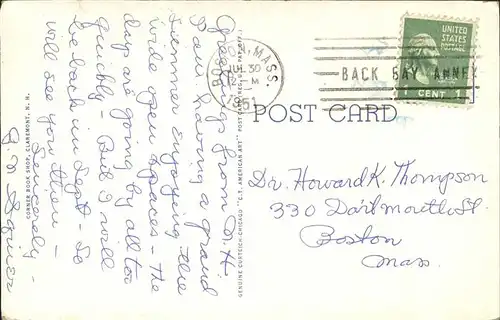 Greetings from N.H.
Am having a grand
summer enjoying the
wide open spaces - the
days are going by all too
quickly - But I will
be back in Sept - So
will see you then -
Sincerely -
CORNER BOOK SHOP, CLAREMONT, N. H.
GENUINE CURTEICH-CHICAGO "C.T. AMERICAN ART"
BOSTON, MASS.
JUL 30
2 PM
1951
BACK BAY ANNEX
UNITED
STATES
POSTAGE
1 CENT 1
POST CARD
Dr. Howard K. Thompson
330 Dartmouth St.
Boston
Mass.